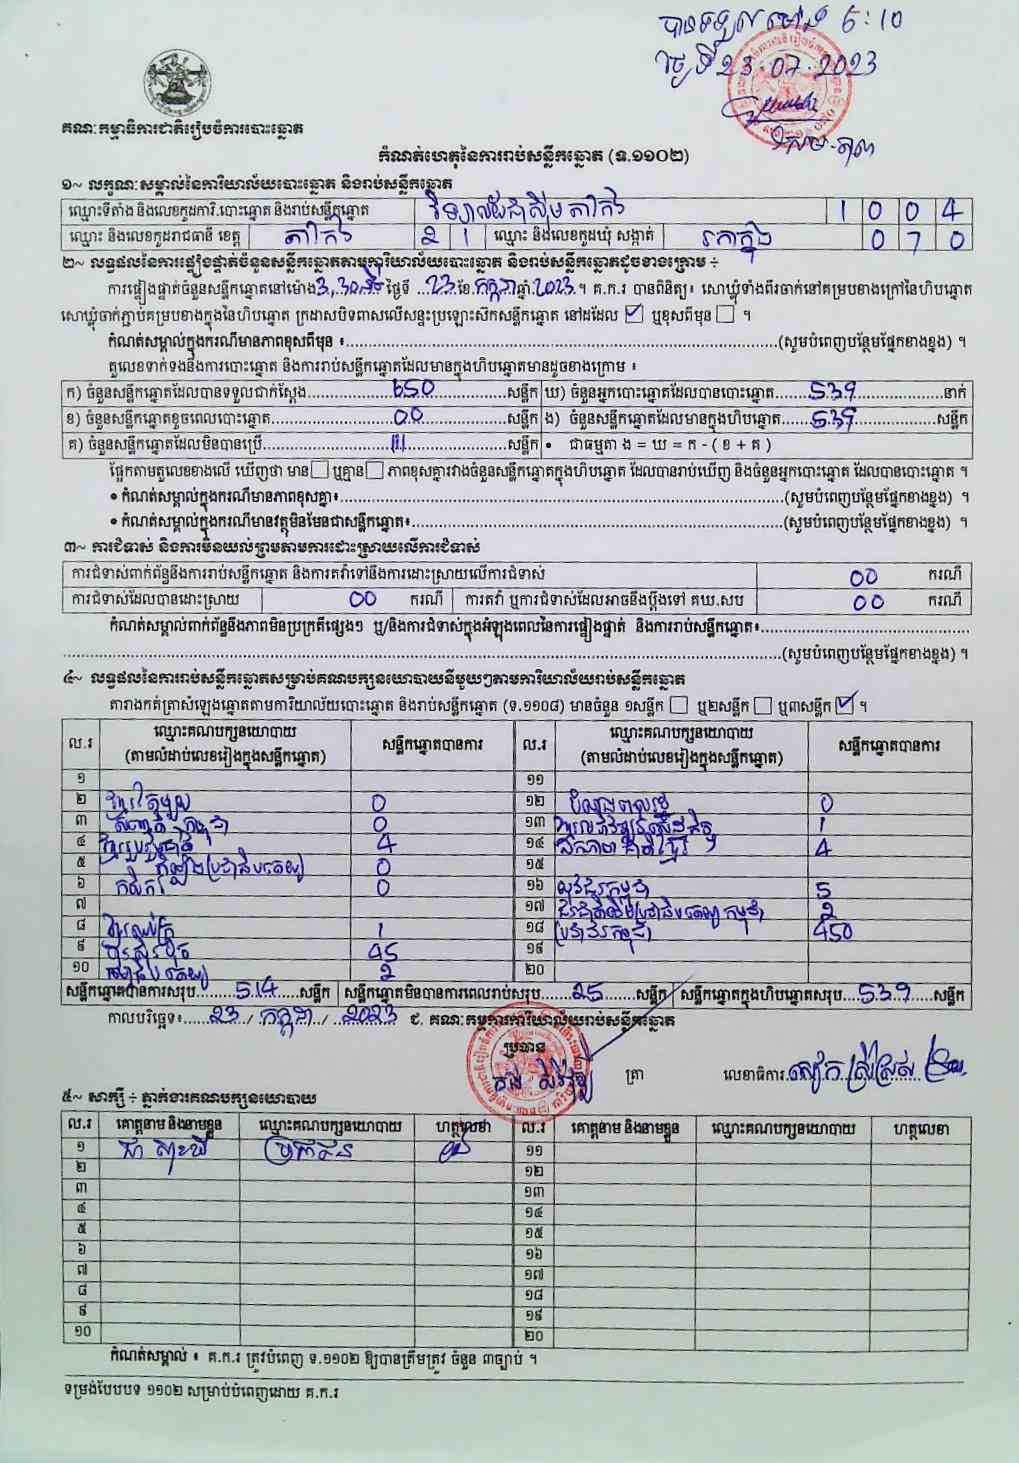 បានទទួលម៉ោង 6:10
ថ្ងៃទី 23.07.2023
គណៈកម្មាធិការជាតិរៀបចំការបោះឆ្នោត
កំណត់ហេតុនៃការរាប់សន្លឹកឆ្នោត (ទ.១១០២)
១~ លក្ខណៈសម្គាល់នៃការិយាល័យបោះឆ្នោត និងរាប់សន្លឹកឆ្នោត
ឈ្មោះទីតាំង និងលេខកូដការិ.បោះឆ្នោត និងរាប់សន្លឹកឆ្នោត វិទ្យាល័យជាស៊ីម តាកែវ 1 0 0 4
ឈ្មោះ និងលេខកូដរាជធានី ខេត្ត តាកែវ 2 1 ឈ្មោះ និងលេខកូដឃុំ សង្កាត់ រកាក្នុង 0 7 0
២~ លទ្ធផលនៃការផ្ទៀងផ្ទាត់ចំនួនសន្លឹកឆ្នោតតាមការិយាល័យបោះឆ្នោត និងរាប់សន្លឹកឆ្នោតដូចខាងក្រោម ÷
ការផ្ទៀងផ្ទាត់ចំនួនសន្លឹកឆ្នោតនៅម៉ោង 3,30នាទី ថ្ងៃទី 23 ខែ កក្កដា ឆ្នាំ 2023 ។ គ.ក.រ បានពិនិត្យ៖ សោឃ្លុំទាំងពីរចាក់នៅគម្របខាងក្រៅនៃហិបឆ្នោត
សោឃ្លុំចាក់ភ្ជាប់គម្របខាងក្នុងនៃហិបឆ្នោត ក្រដាសបិទពាសលើសន្ទះប្រឡោះស៊កសន្លឹកឆ្នោត នៅដដែល ☑ ឬខុសពីមុន ☐ ។
កំណត់សម្គាល់ក្នុងករណីមានភាពខុសពីមុន ៖ (សូមបំពេញបន្ថែមផ្នែកខាងខ្នង) ។
តួលេខទាក់ទងនឹងការបោះឆ្នោត និងការរាប់សន្លឹកឆ្នោតដែលមានក្នុងហិបឆ្នោតមានដូចខាងក្រោម ៖
ក) ចំនួនសន្លឹកឆ្នោតដែលបានទទួលជាក់ស្ដែង 650 សន្លឹក ឃ) ចំនួនអ្នកបោះឆ្នោតដែលបានបោះឆ្នោត 539 នាក់
ខ) ចំនួនសន្លឹកឆ្នោតខូចពេលបោះឆ្នោត 00 សន្លឹក ង) ចំនួនសន្លឹកឆ្នោតដែលមានក្នុងហិបឆ្នោត 539 សន្លឹក
គ) ចំនួនសន្លឹកឆ្នោតដែលមិនបានប្រើ 111 សន្លឹក • ជាធម្មតា ង = ឃ = ក - ( ខ + គ )
ផ្អែកតាមតួលេខខាងលើ ឃើញថា មាន ☐ ឬគ្មាន ☐ ភាពខុសគ្នារវាងចំនួនសន្លឹកឆ្នោតក្នុងហិបឆ្នោត ដែលបានរាប់ឃើញ និងចំនួនអ្នកបោះឆ្នោត ដែលបានបោះឆ្នោត ។
• កំណត់សម្គាល់ក្នុងករណីមានភាពខុសគ្នា៖ (សូមបំពេញបន្ថែមផ្នែកខាងខ្នង) ។
• កំណត់សម្គាល់ក្នុងករណីមានវត្ថុមិនមែនជាសន្លឹកឆ្នោត៖ (សូមបំពេញបន្ថែមផ្នែកខាងខ្នង) ។
៣~ ការជំទាស់ និងការមិនយល់ព្រមតាមការដោះស្រាយលើការជំទាស់
ការជំទាស់ពាក់ព័ន្ធនឹងការរាប់សន្លឹកឆ្នោត និងការតវ៉ាទៅនឹងការដោះស្រាយលើការជំទាស់ 00 ករណី
ការជំទាស់ដែលបានដោះស្រាយ 00 ករណី ការតវ៉ា ឬការជំទាស់ដែលអាចនឹងប្ដឹងទៅ គឃ.សប 00 ករណី
កំណត់សម្គាល់ពាក់ព័ន្ធនឹងភាពមិនប្រក្រតីផ្សេងៗ ឬ/និងការជំទាស់ក្នុងអំឡុងពេលនៃការផ្ទៀងផ្ទាត់ និងការរាប់សន្លឹកឆ្នោត៖
(សូមបំពេញបន្ថែមផ្នែកខាងខ្នង) ។
៤~ លទ្ធផលនៃការរាប់សន្លឹកឆ្នោតសម្រាប់គណបក្សនយោបាយនីមួយៗតាមការិយាល័យរាប់សន្លឹកឆ្នោត
តារាងកត់ត្រាសំឡេងឆ្នោតតាមការិយាល័យបោះឆ្នោត និងរាប់សន្លឹកឆ្នោត (ទ.១១០៨) មានចំនួន ១សន្លឹក ☐ ឬ២សន្លឹក ☐ ឬ៣សន្លឹក ☑ ។
ល.រ ឈ្មោះគណបក្សនយោបាយ (តាមលំដាប់លេខរៀងក្នុងសន្លឹកឆ្នោត) សន្លឹកឆ្នោតបានការ ល.រ ឈ្មោះគណបក្សនយោបាយ (តាមលំដាប់លេខរៀងក្នុងសន្លឹកឆ្នោត) សន្លឹកឆ្នោតបានការ
១ ១១
២ ខ្មែរតែមួយ 0 ១២ 0
៣ 0 ១៣ 1
៤ ខ្មែររួបរួមជាតិ 4 ១៤ 4
៥ ប្រជាធិបតេយ្យ 0 ១៥
៦ កសិករ 0 ១៦ 5
៧ ១៧ ជនជាតិដើមប្រជាធិបតេយ្យកម្ពុជា 2
៨ 1 ១៨ ប្រជាជនកម្ពុជា 450
៩ 45 ១៩
១០ 2 ២០
សន្លឹកឆ្នោតបានការសរុប 514 សន្លឹក សន្លឹកឆ្នោតមិនបានការពេលរាប់សរុប 25 សន្លឹក សន្លឹកឆ្នោតក្នុងហិបឆ្នោតសរុប 539 សន្លឹក
កាលបរិច្ឆេទ៖ 23 / កក្កដា / 2023 ជ. គណៈកម្មការការិយាល័យរាប់សន្លឹកឆ្នោត
ប្រធាន
ត្រា លេខាធិការ
៥~ សាក្សី ÷ ភ្នាក់ងារគណបក្សនយោបាយ
ល.រ គោត្តនាម និងនាមខ្លួន ឈ្មោះគណបក្សនយោបាយ ហត្ថលេខា ល.រ គោត្តនាម និងនាមខ្លួន ឈ្មោះគណបក្សនយោបាយ ហត្ថលេខា
១ ១១
២ ១២
៣ ១៣
៤ ១៤
៥ ១៥
៦ ១៦
៧ ១៧
៨ ១៨
៩ ១៩
១០ ២០
កំណត់សម្គាល់ ៖ គ.ក.រ ត្រូវបំពេញ ទ.១១០២ ឱ្យបានត្រឹមត្រូវ ចំនួន ៣ច្បាប់ ។
ទម្រង់បែបបទ ១១០២ សម្រាប់បំពេញដោយ គ.ក.រ